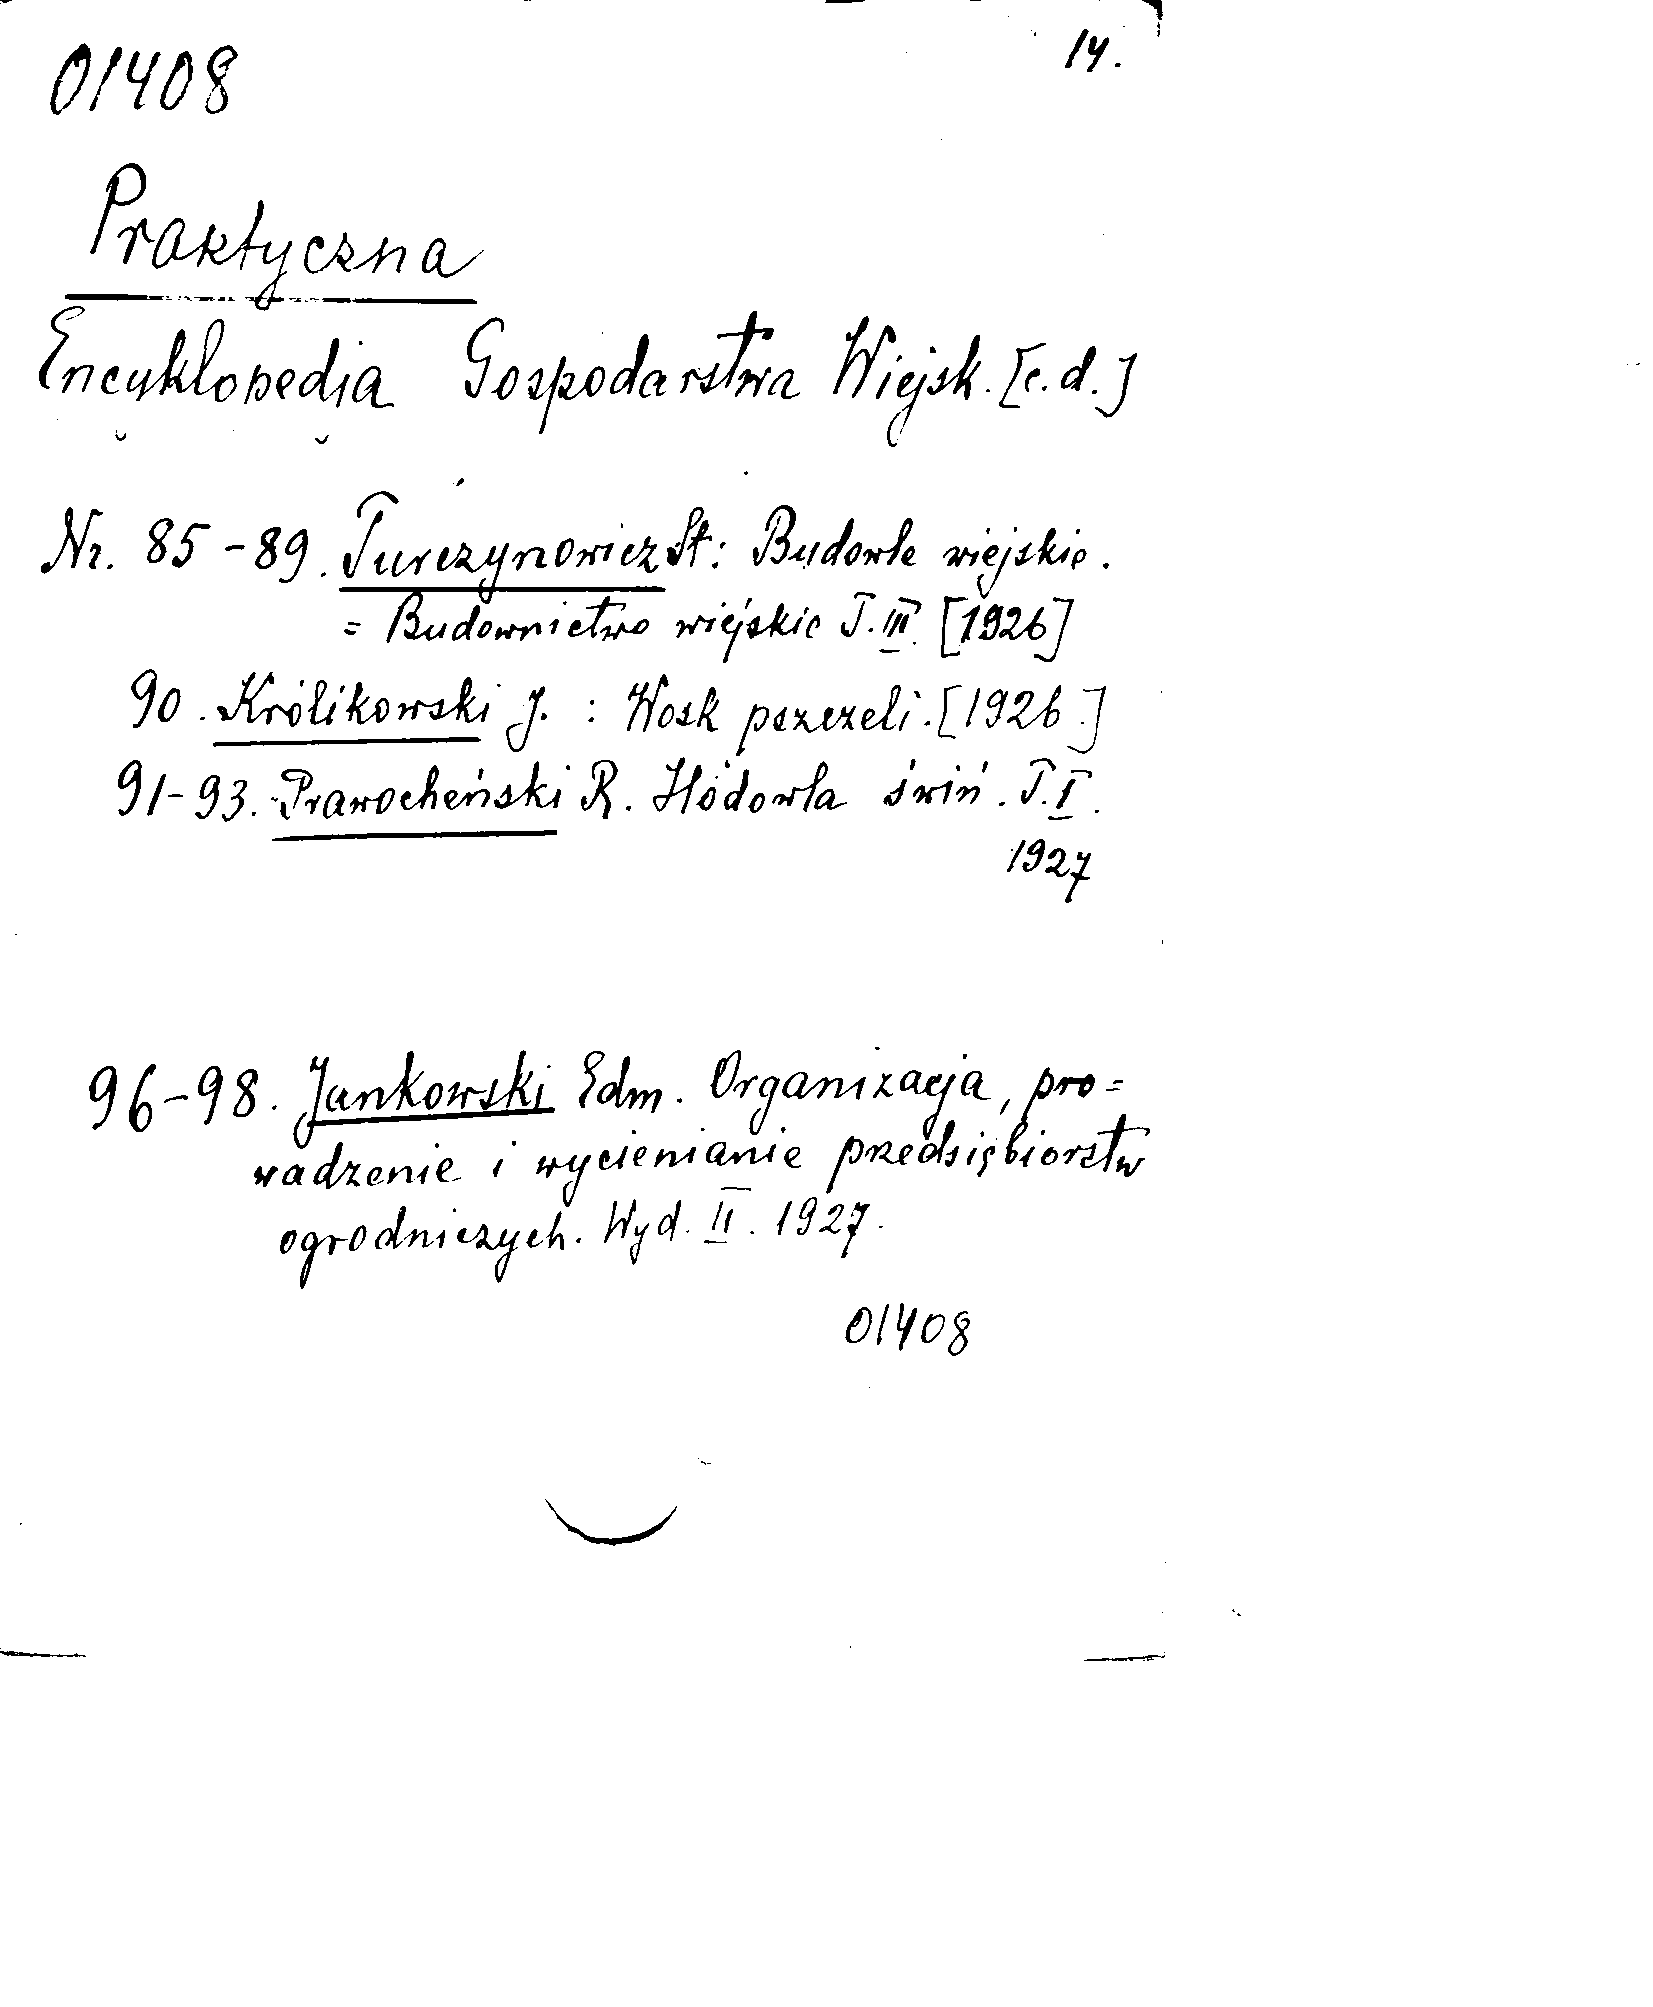 01408
14.
Praktyczna
Encyklopedia Gospodarstwa Wiejsk. [c.d.]
Nr. 85-89. Turczynowicz St: Budowle wiejskie.
= Budownictwo wiejskie T. III. [1926]
90. Królikowski J. : Wosk pszczeli. [1926.]
91-93. Prawocheński R. Hodowla świń. T. I.
1927
96-98. Jankowski Edm. Organizacja, pro=
wadzenie i wycienianie przedsiębiorstw
ogrodniczych. Wyd. II. 1927.
01408